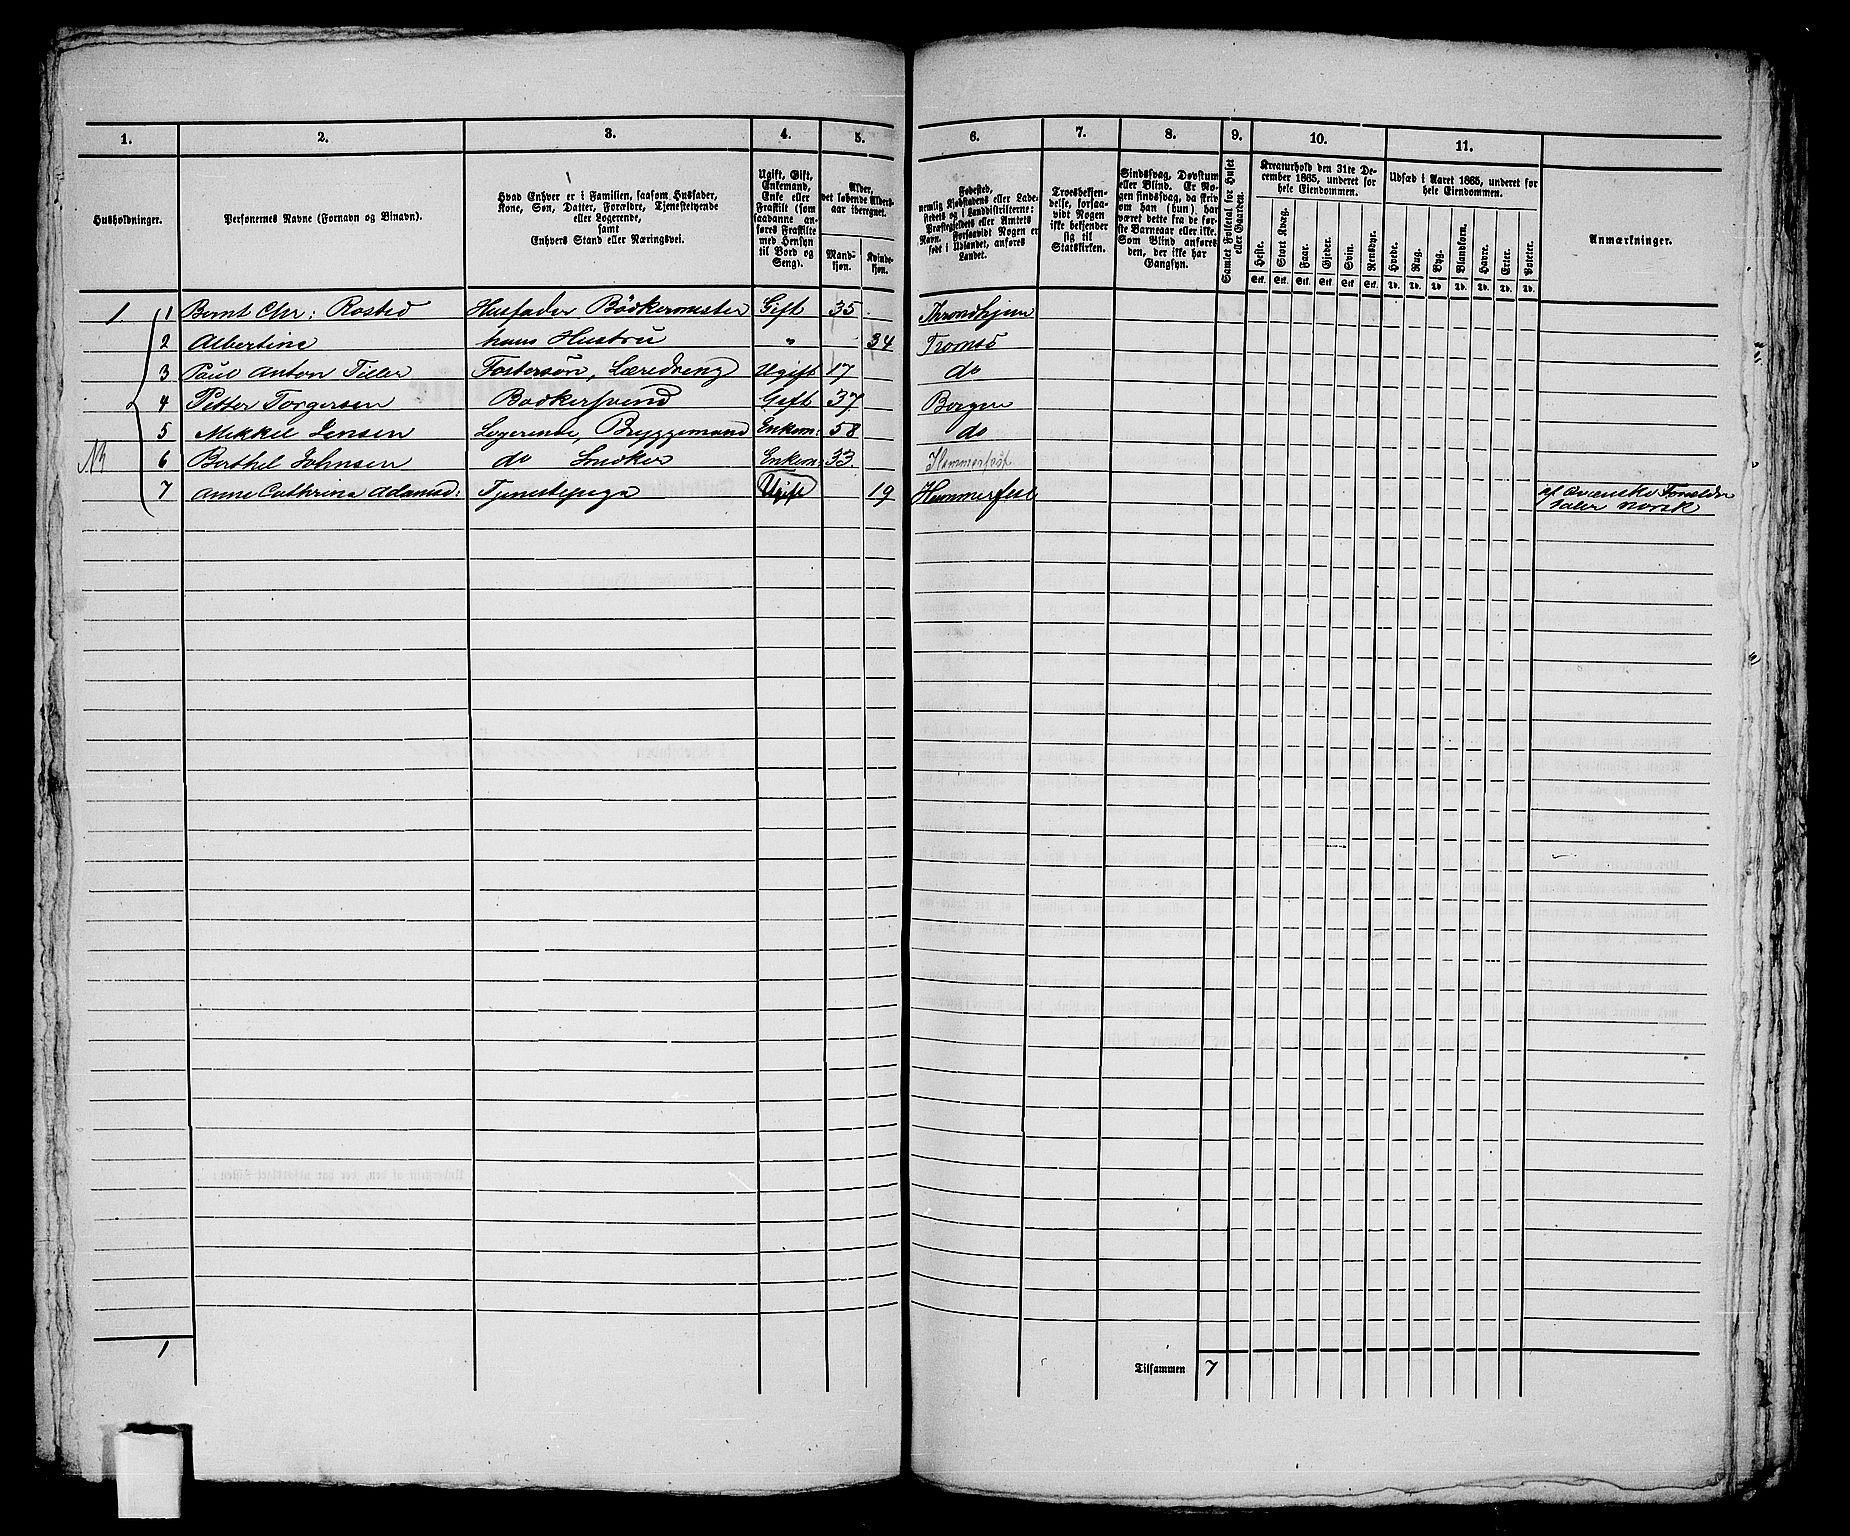 1. 2. 3. 4. 5. 6. 7. 8. 9. 10. 11.
Husholdninger.
Personernes Navne (Fornavn og Binavn).
Hvad Enhver er i Familien, saasom Husfader,
Kone, Søn, Datter, Forældre, Tjenestetyende
eller Logerende,
samt
Enhvers Stand eller Næringsvei.
Ugift, Gift,
Enkemand,
Enke eller
Fraskilt (som
saadanne an-
føres Fraskilte
med Hensyn
til Bord og
Seng).
Alder,
det løbende Alders-
aar iberegnet.
Mand-
kjøn.
Kvinde-
kjøn.
Fødested,
nemlig Kjøbstadens eller Lade-
stedets og i Landdistrikterne:
Præstegjeldets eller Amtets
Navn. Forsaavidt Nogen er
født i Udlandet, anføres
Landet.
Troesbekjen-
delse, forsaa-
vidt Nogen
ikke bekjender
sig til
Statskirken.
Sindssvag, Døvstum
eller Blind. Er No-
gen sindssvag, da skriv
om han (hun) har
været dette fra de før-
ste Barneaar eller ikke.
Som Blind anføres
den, der ikke har
Gangsyn.
Samlet Folketal for Huset
eller Gaarden.
Kreaturhold den 31te De-
cember 1865, underet for
hele Eiendommen.
Heste. Stort Kvæg. Faar. Gjeder. Svin. Rensdyr.
Stk. Stk. Stk. Stk. Stk. Stk.
Udsæd i Aaret 1865, underet for
hele Eiendommen.
Hvede. Rug. Byg. Blandkorn. Havre. Erter. Poteter.
Td. Td. Td. Td. Td. Td. Td.
Anmærkninger.
1. 1 Bernt Chr: Rosted Husfader Bödkermester Gift 35 Throndhjem
2 Albertine hans Hustru " 34 Tromsö
3 Paul Anton Tiller Fostersön, Læredreng Ugift 17 do
4 Petter Torgersen Bödkersvend Gift 37 Bergen
5 Mikkel Jensen Logerende, Bryggemand Enkem: 58 do
6 Berthel Johnsen do Snedker Enkem: 33 Hammerfest
7 Anne Cathrine Adamsd: Tjenestepige Ugift 19 Hammerfest af qvænske Forældre
taler norsk
1
Tilsammen 7